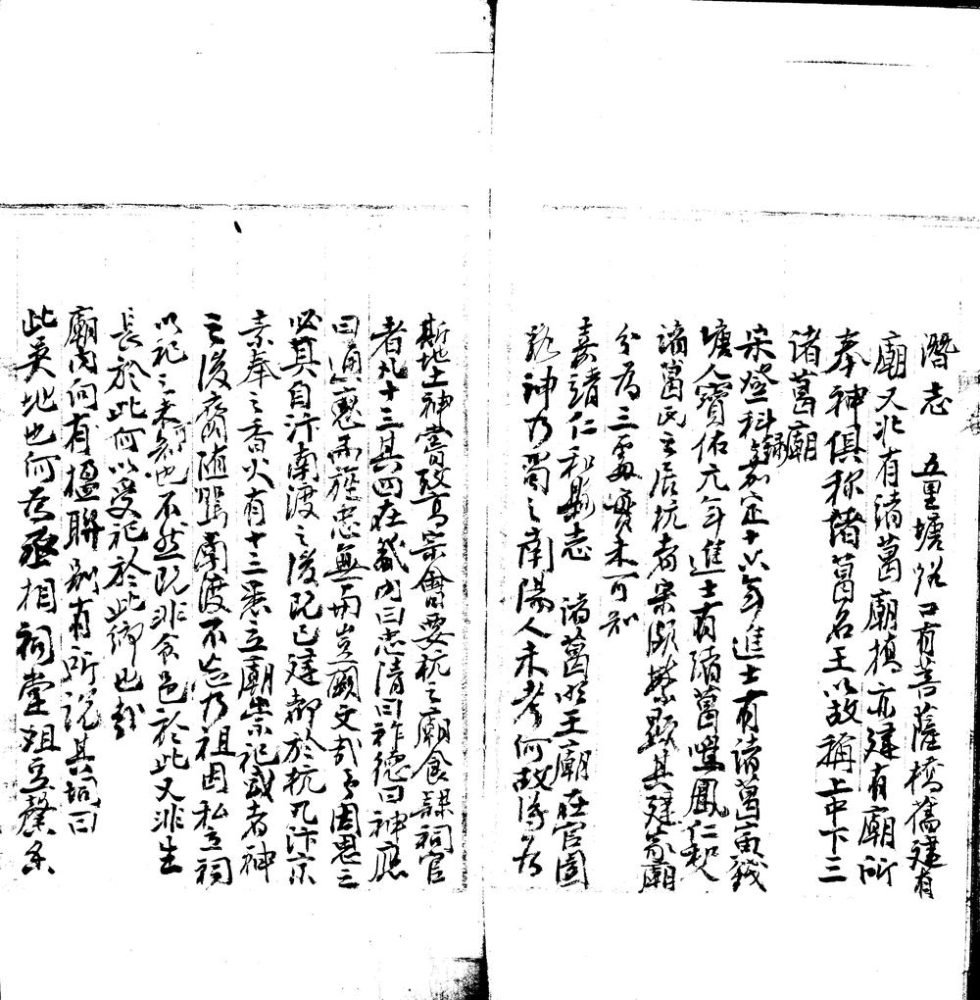 潛志　五里塘路口有菩薩橋舊建有
廟又北有諸葛廟橋亦建有廟所
奉神俱称諸葛名王以故稱上中下三
諸葛廟
宋登科錄嘉定十六年進士有諸葛寅錢
塘人寶佑元年進士有諸葛鳳仁和人
諸葛氏之居杭者宋頗繁縣其建家廟
分為三要實未可知
嘉靖仁和縣志　諸葛明王廟在官園
神乃蜀之南陽人未考何故得為
斯地土神嘗攷高宗會要杭之廟食隷祠官
者凡十三其四在城内曰忠清曰祚德曰神應
曰通靈而旌忠無聞豈厥文哉予因思之
必其自汴南渡之後既已建都於杭凡汴京
素奉之香火有十三悉立廟崇祀或者神
之後裔随蹕南渡不忘乃祖因私立祠
以祀之未可知也不然既非食邑於此又非生
長於此何以受祀於此鄉也歟
廟内向有楹聯别有所說其詞曰
此吳地也何为丞相祠堂俎豆馨香